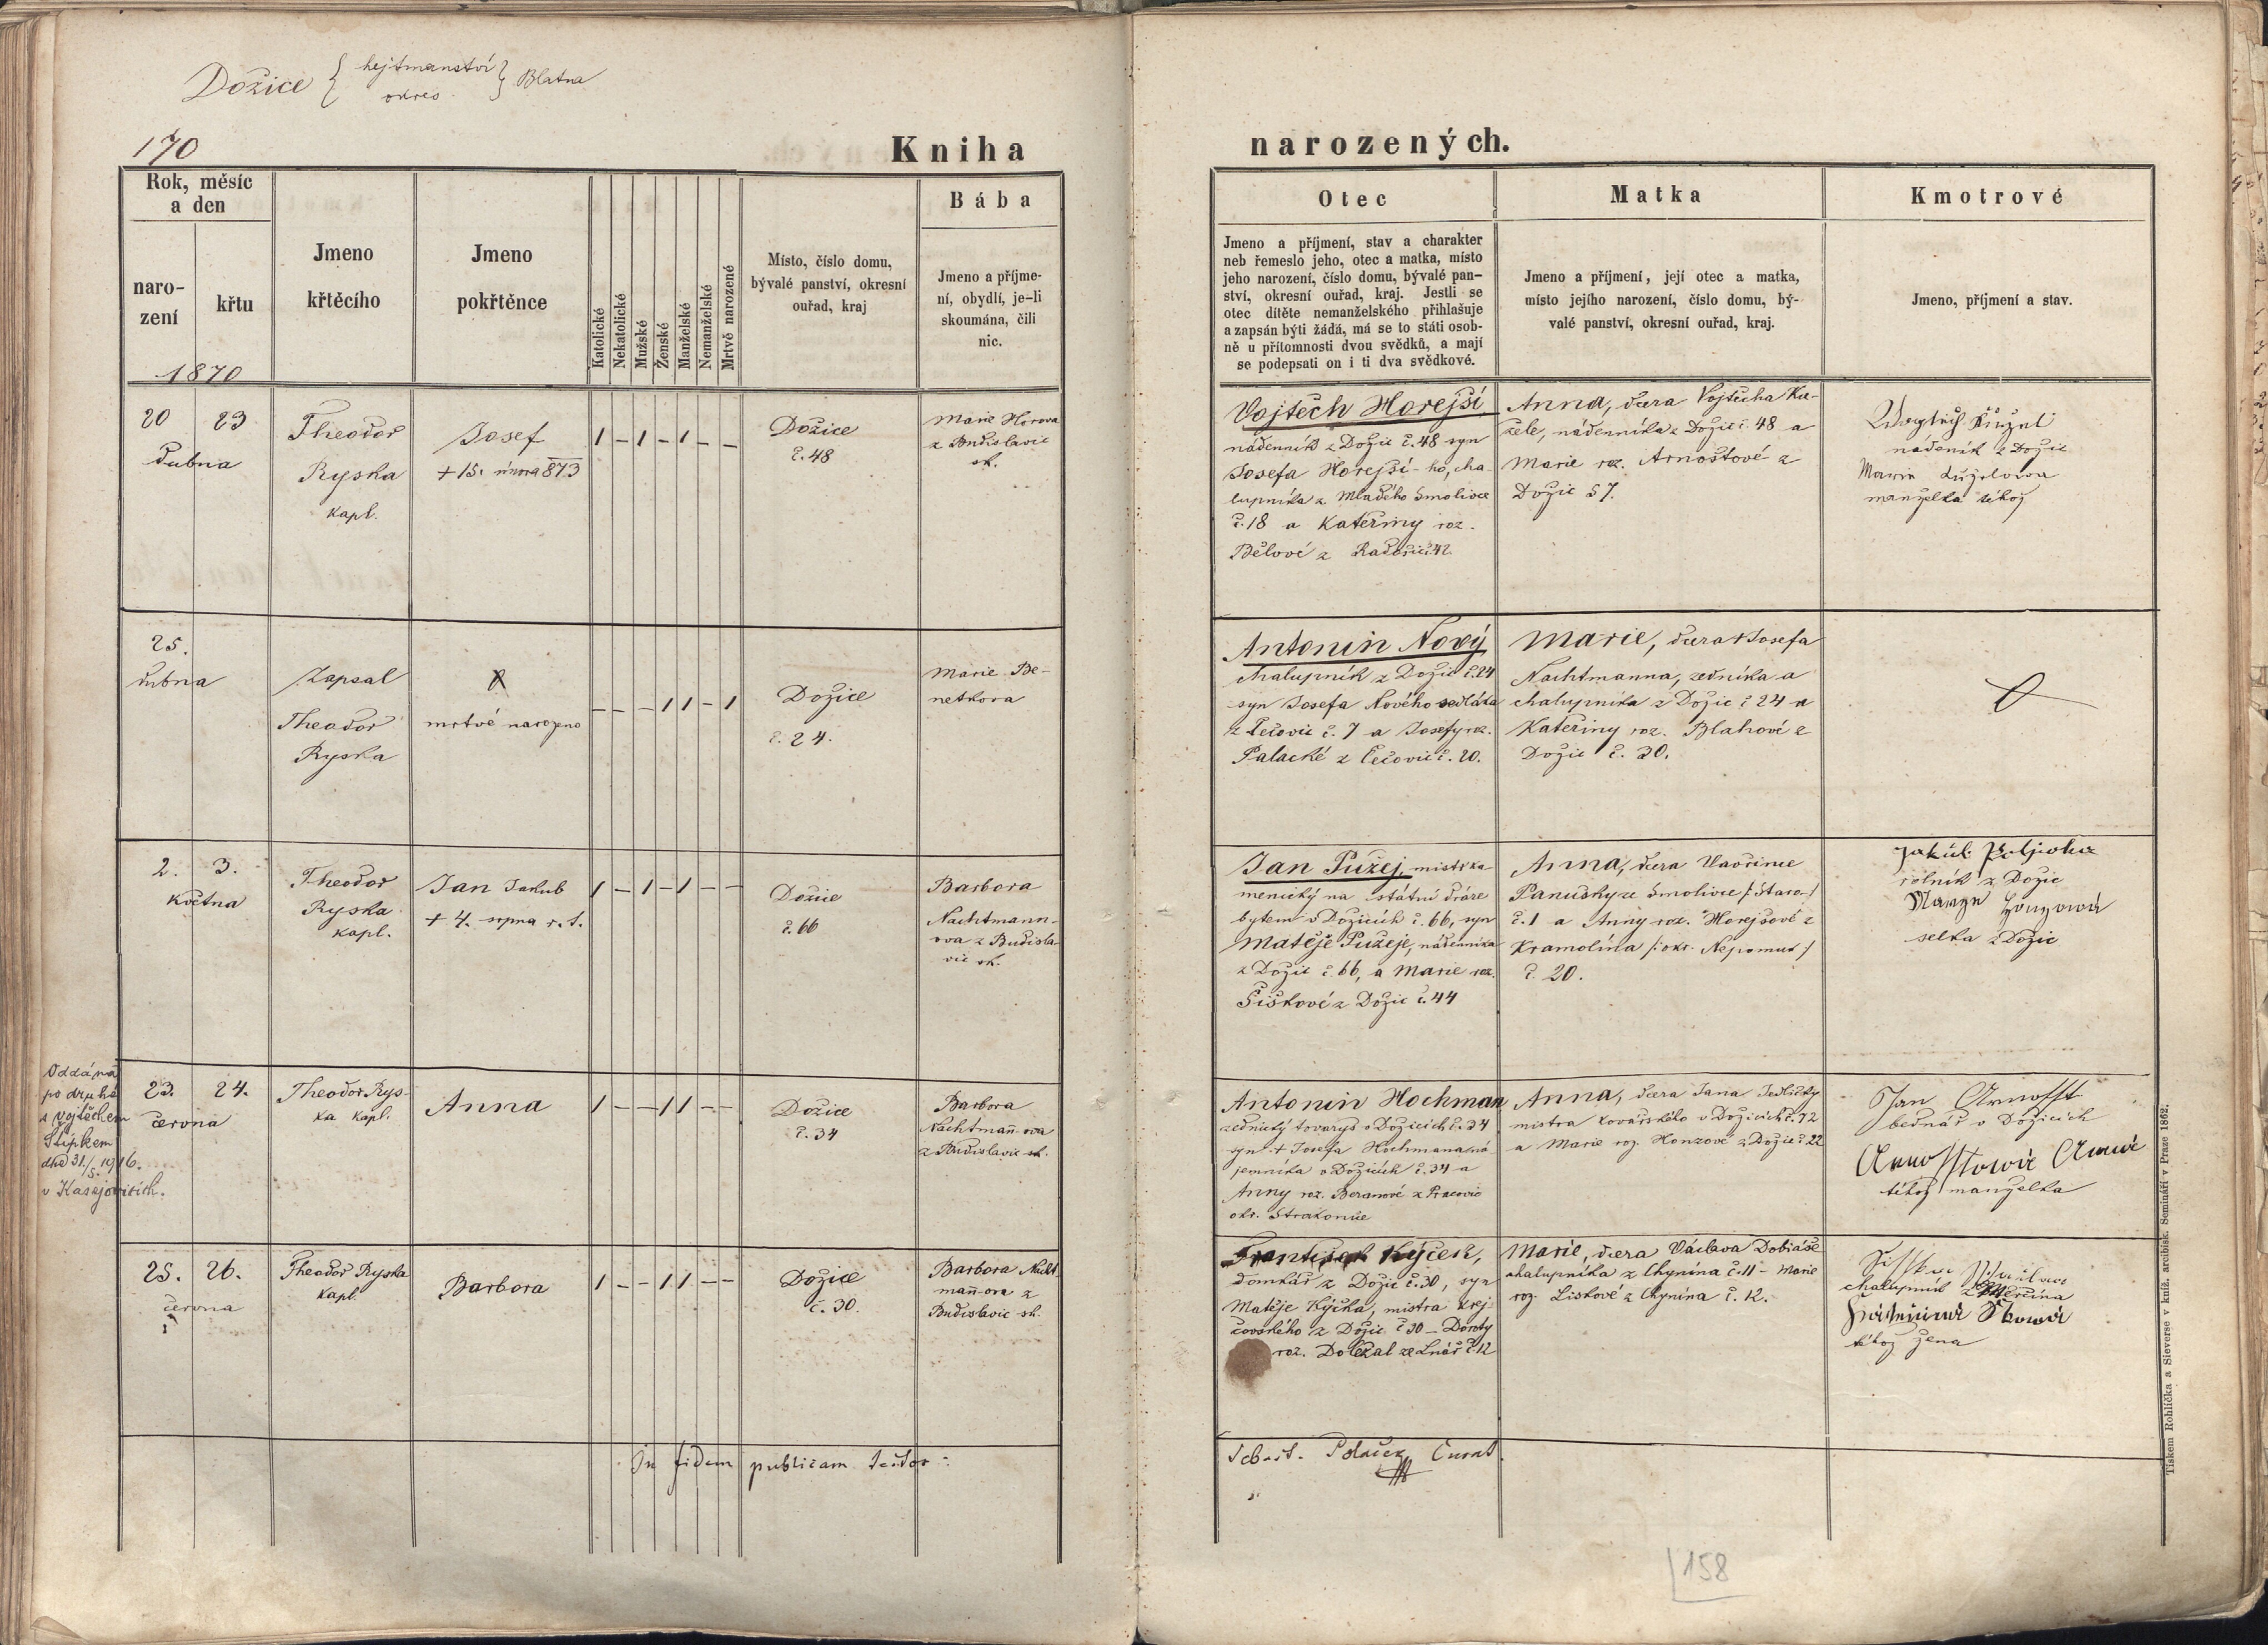 Dožice { hejtmanství } Blatna
okres
170
Kniha
narozených.
Rok, měsíc
a den
naro-
zení
křtu
1870
Jmeno
křtěcího
Jmeno
pokřtěnce
Katolické
Nekatolické
Mužské
Ženské
Manželské
Nemanželské
Mrtvě narozené
Místo, číslo domu,
bývalé panství, okresní
ouřad, kraj
Bába
Jmeno a příjme-
ní, obydlí, je-li
skoumána, čili
nic.
Otec
Jmeno a příjmení, stav a charakter
neb řemeslo jeho, otec a matka, místo
jeho narození, číslo domu, bývalé pan-
ství, okresní ouřad, kraj. Jestli se
otec dítěte nemanželského přihlašuje
a zapsán býti žádá, má se to státi osob-
ně u přítomnosti dvou svědků, a mají
se podepsati on i ti dva svědkové.
Matka
Jmeno a příjmení, její otec a matka,
místo jejího narození, číslo domu, bý-
valé panství, okresní ouřad, kraj.
Kmotrové
Jmeno, příjmení a stav.
20 23
dubna
Theodor
Ryska
kapl.
Josef
+ 15. února 873
1 – 1 – 1 – –
Dožice
č. 48
Marie
z Budislavic
zk.
Vojtěch Horejší
nádenník z Dožic č. 48 syn
Josefa Horejší-ho, cha-
lupníka z Mladého Smolivce
č. 18 a Kateřiny roz.
Bělové z
Anna, dcera Vojtěcha Ku-
žele, nádenníka z Dožic č. 48 a
Marie roz. Arnoštové z
Dožic 57.
nádeník z Dožic
manželka téhož
25.
dubna
Zapsal
Theodor
Ryska
mrtvé narozeno
– – – 1 1 – 1
Dožice
č. 24.
Marie Be-
netkova
Antonín Nový
chalupník z Dožic č. 24
syn Josefa Nového sedláka
z Čečovic č. 7 a Josefy roz.
Palacké z Čečovic č. 20.
Marie, dcera + Josefa
Nachtmanna, zedníka a
chalupníka z Dožic č 24 a
Kateřiny roz. Blahové z
Dožic č. 30.
2. 3.
května
Theodor
Ryska
kapl.
Jan Jakub
+ 4. srpna r. t.
1 – 1 – 1 – –
Dožice
č. 66
Barbora
Nachtmann-
ova z Budisla-
vic zk.
Jan Pužej, mistr ka-
menický na státní dráze
bytem v Dožicích č. 66, syn
Matěje Pužeje, nádenníka
z Dožic č. 66, a Marie roz.
Šiškové z Dožic č. 44
Anna, dcera Vavřince
Panušky ze Smolivce /: Staro :/
č. 1 a Anny roz. Horejšové z
Kramolína /: okr. Nepomuk :/
č. 20.
rolník z Dožic
selka z Dožic
Oddána
po druhé
s Vojtěchem
Štípkem
dne 31./5. 1916.
v Kasejovicích.
23. 24.
června
Theodor Rys-
ka kapl.
Anna
1 – – 1 1 – –
Dožice
č. 34
Barbora
Nachtmann-ova
z Budislavic zk.
Antonín Hochman
zednický tovaryš v Dožicích č. 34
syn + Josefa Hochmana ná-
jemníka v Dožicích č. 34 a
Anny roz. Beranové z Pracovic
okr. Strakonice
Anna, dcera Jana Jedličky
mistra kovářského v Dožicích č. 72
a Marie roz. Honzové z Dožic č 22
Jan Arnosst
bednář v Dožicích
Arnosstowá Anna
téhož manželka
25. 26.
června
Theodor Ryska
kapl.
Barbora
1 – – 1 1 – –
Dožice
č. 30.
Barbora Nacht-
mann-ova z
Budislavic zk.
František Kýček,
domkář z Dožic č. 30, syn
Matěje Kýčka, mistra krej-
čovského z Dožic č 30 – Doroty
roz. Doležal ze Lnář č. 12
Marie, dcera Václava Dobiáše
chalupníka z Chynína č. 11 – Marie
roz. Liskové z Chynína č. 12.
chalupník z
téhož žena
In fidem publicam testor:
Sebast. Polaček Curat.
158
Tiskem Rohlíčka a Sieverse v kníž. arcibisk. Semináři v Praze 1862.